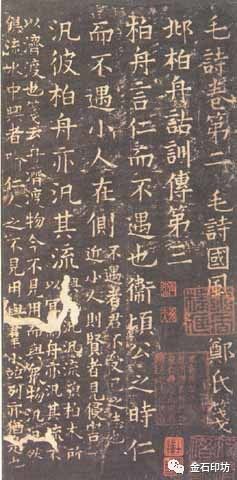 毛詩卷第二 毛詩國風 鄭氏箋
邶柏舟詁訓傳第三
柏舟言仁而不遇也衞頃公之時仁
而不遇小人在側
不遇者君不受己之志也
近小人則賢者見侵害
汎彼柏舟亦汎其流
汎汎流貌柏木所
以宜為舟也亦汎其流不
以濟渡也箋云舟載渡物今不見用而與衆物汎汎然
俱流水中興者喻仁人之不見用與羣小並列亦猶是
金石印坊